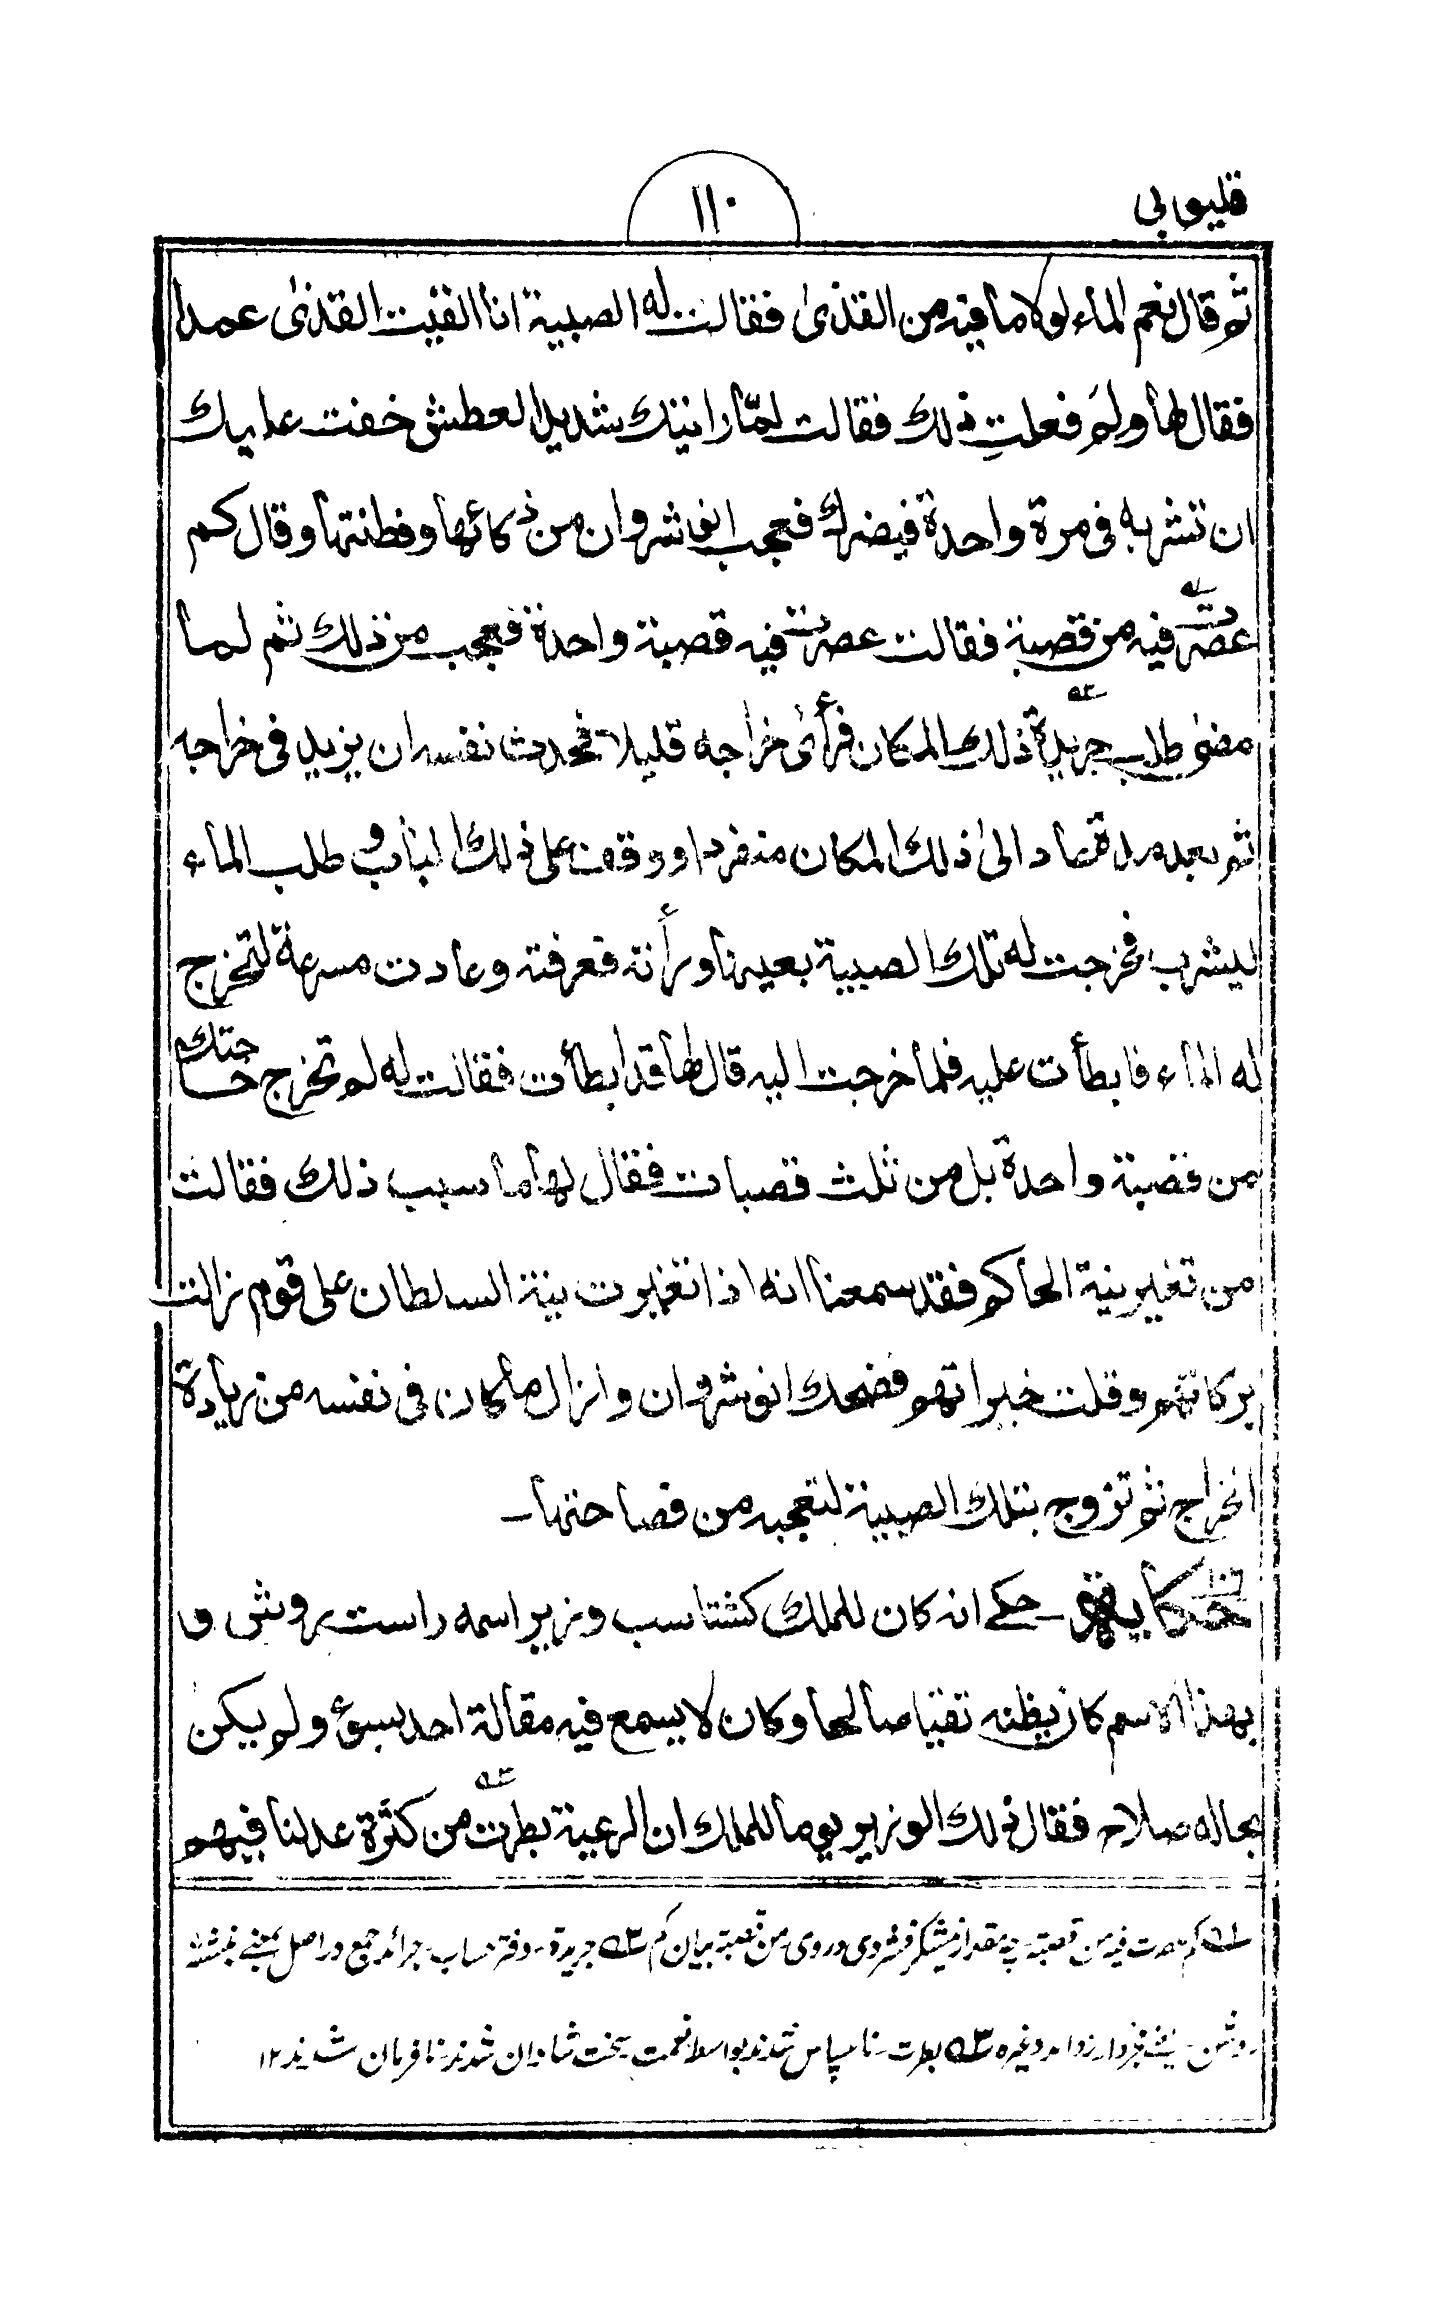 قليوبي
١١٠
ثم قال نعم الماء لولا ما فيه من القذى فقالت له الصبية انا القيت القذى عمدا
فقال لها ولم فعلتِ ذلك فقالت لمّا رايتك شديد العطش خفت عليك
ان تشربه في مرة واحدة فيضرك فعجب انوشروان من ذكائها وفطنتها وقال كم
عصرت فيه من قصبة فقالت عصرت فيه قصبة واحدة فعجب من ذلك ثم لما
مضى طلب جريدة ذلك المكان فرأى خراجه قليلا فحدث نفسه ان يزيد في خراجه
ثم بعد مدة عاد الى ذلك المكان منفردا ووقف على ذلك الباب و طلب الماء
ليشرب فخرجت له تلك الصبية بعينها ورأته فعرفته وعادت مسرعة لتخرج
له الماء فابطأت عليه فلما خرجت اليه قال لها قد ابطأت فقالت له لم تخرج حاجتك
من قصبة واحدة بل من ثلث قصبات فقال لها ما سبب ذلك فقالت
من تغير نية الحاكم فقد سمعنا انه اذا تغيرت نية السلطان على قوم زالت
بركاتهم وقلت خيراتهم فضحك انوشروان وازال ما كان في نفسه من زيادة
الخراج ثم تزوج بتلك الصبية لتعجبه من فصاحتها -
حكاية - حكي انه كان للملك كشتاسب وزير اسمه راست روش و
بهذا الاسم كان يظنه تقيا صالحا وكان لا يسمع فيه مقالة احد بسوء ولم يكن
بحاله صلاح فقال ذلك الوزير يوما للملك ان الرعية بطرت من كثرة عدلنا فيهم
له كم عصرت فيه من قصبة - چه مقدار نيشكر فشردی در وی - من قصبة بيان كم ٢ه جريدة - دفتر حساب - جرائد جمع در اصل بمعنے نبشته
روشن - يعنے دغيره ٣ه بطرت - نا سپاس شدند بواسطه نعمت - سخت شادان شدند - نافرمان شدند ١٢